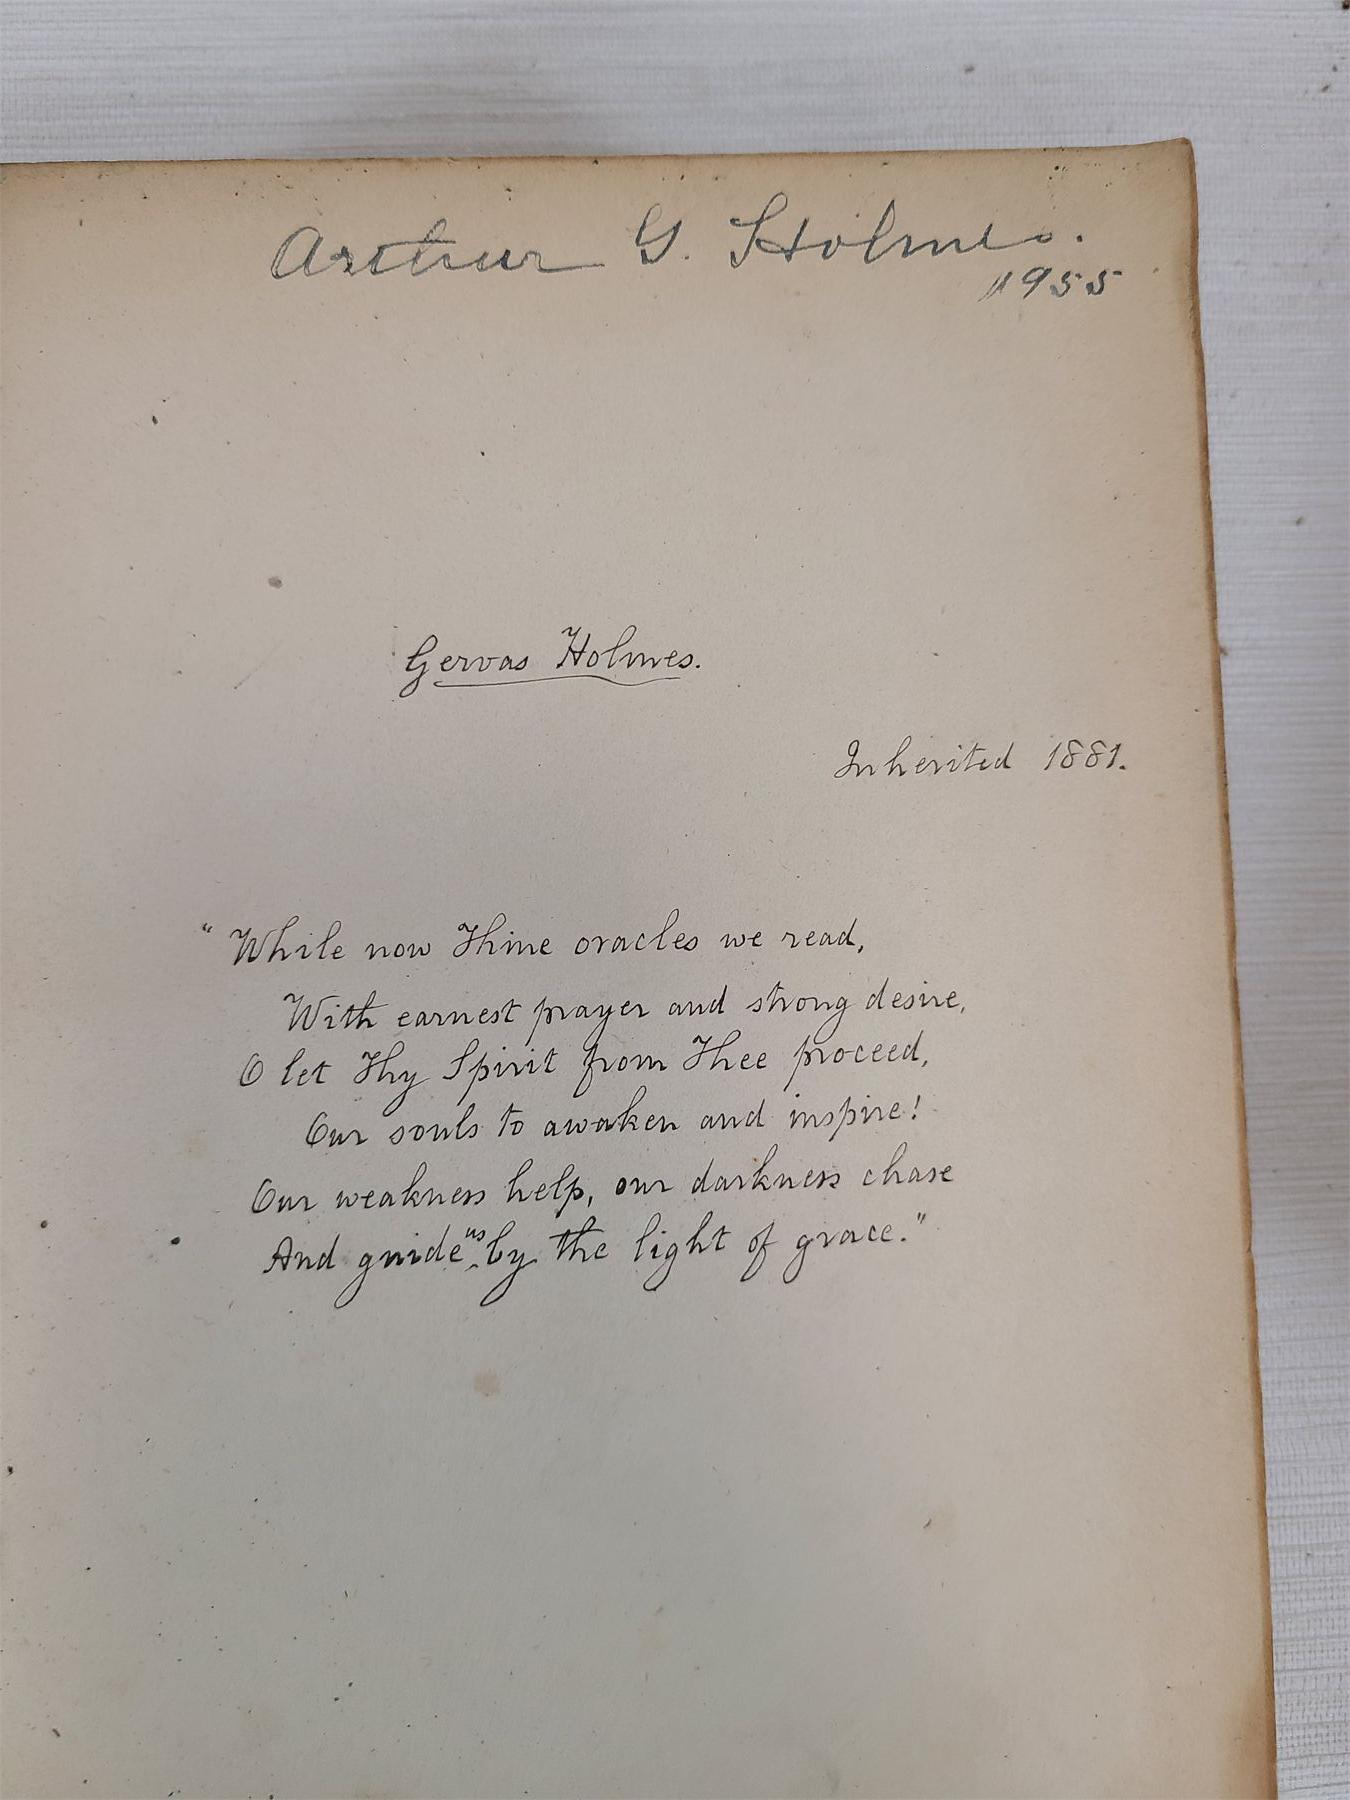 Arthur G. Holmes.
1955
Gervas Holmes.
Inherited 1881.
"While now Thine oracles we read,
With earnest prayer and strong desire,
O let Thy Spirit from Thee proceed,
Our souls to awaken and inspire!
Our weakness help, our darkness chase
And guide us by the light of grace."